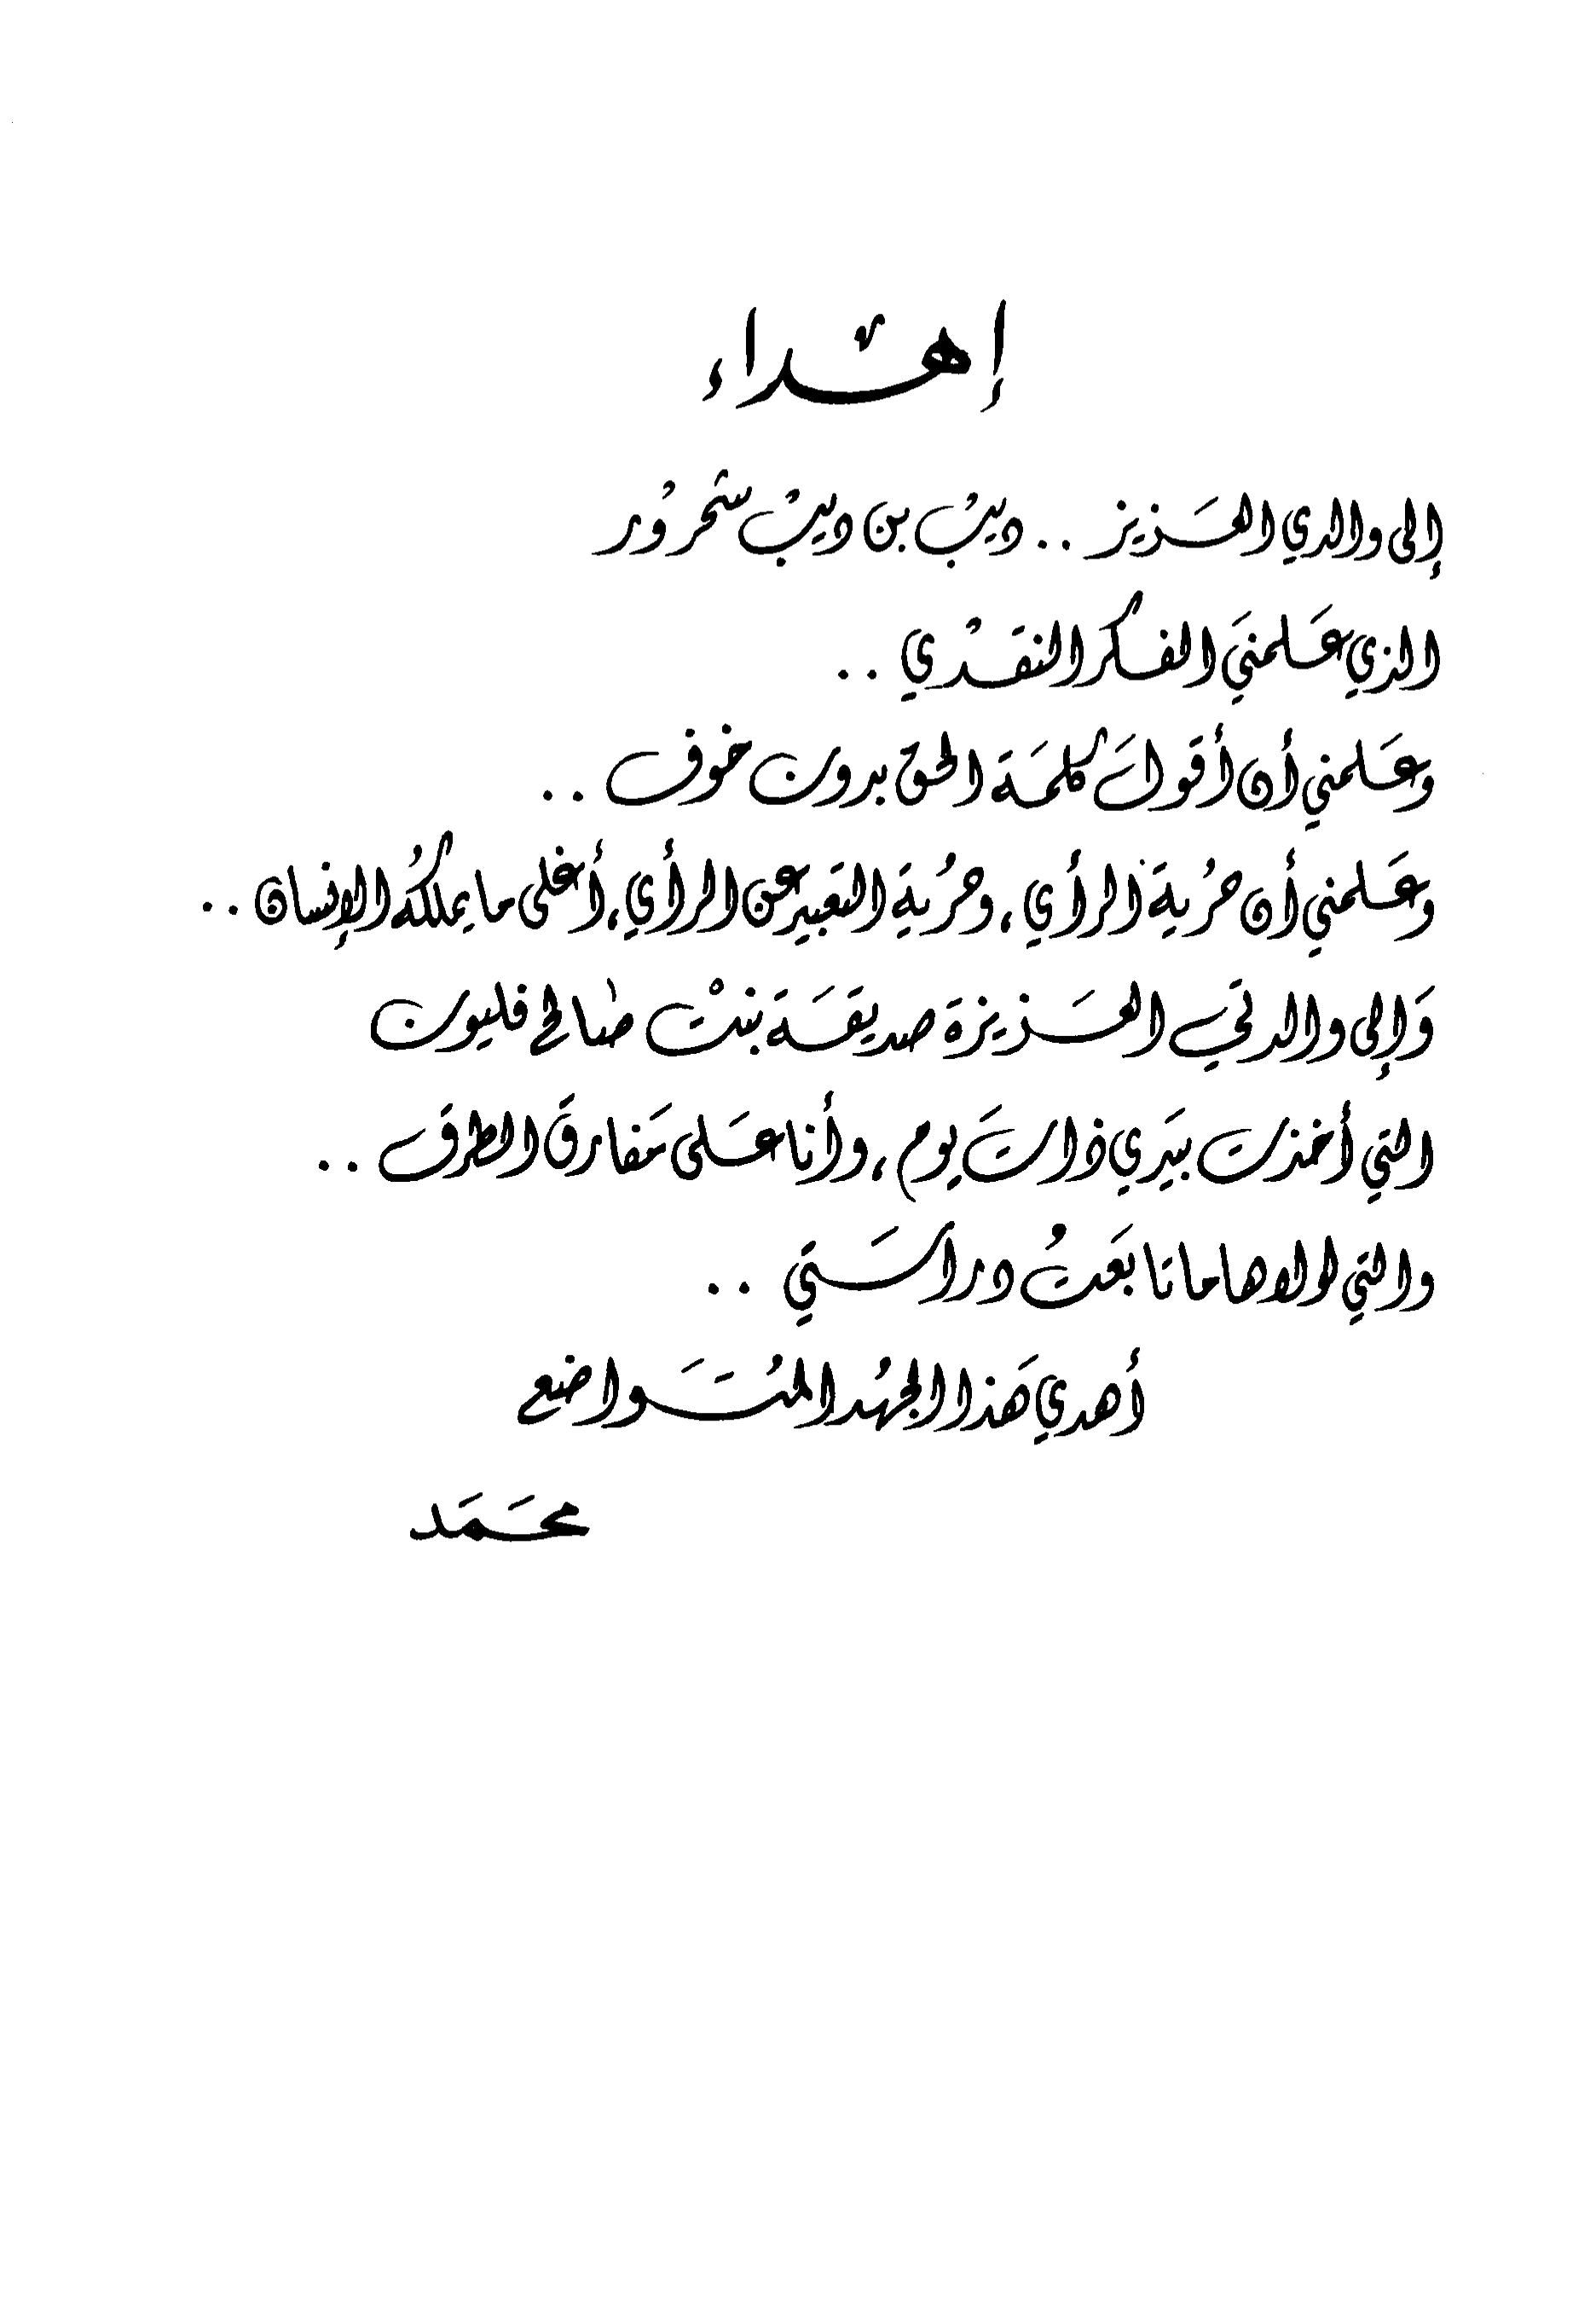 إهداء
إلى والدي العزيز .. ديب بن ديب شحرور
الذي علمني الفكر النقدي ..
وعلمني أن أقول كلمة الحق بدون خوف ..
وعلمني أن حرية الرأي، وحرية التعبير عن الرأي، أغلى ما يملكه الإنسان ..
وإلى والدتي العزيزة صديقة بنت صالح فليون
التي أخذت بيدي ذات يوم، وأنا على مفارق الطرق ..
والتي لولاها ما تابعت دراستي ..
أهدي هذا الجهد المتواضع
محمد